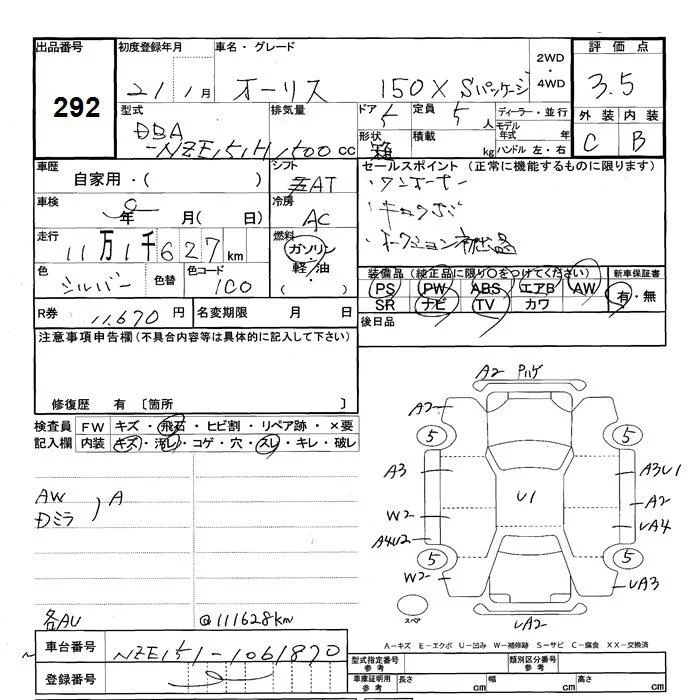 出品番号 初度登録年月 車名・グレード 2WD・4WD 評価点
292 21 1月 オーリス 150X Sパッケージ 3.5
型式 排気量 ドア 5 定員 5人 ディーラー・並行 外装 内装
DBA-NZE151H 1,500cc 形状 箱 積載 kg モデル年式 年 ハンドル 左・右 C B
車歴 自家用・( ) シフト AT セールスポイント (正常に機能するものに限ります)
・ワンオーナー
車検 0年 月( 日) 冷房 AC
走行 11万1千627km 燃料 ガソリン・軽油・( )
色 シルバー 色替 色コード 1C0
装備品(純正品に限り○をつけてください) 新車保証書
PS PW ABS エアB AW 有・無
SR ナビ TV カワ
R券 11,670円 名変期限 月 日 後日品
注意事項申告欄(不具合内容等は具体的に記入して下さい)
修復歴 有 〔箇所 〕
検査員記入欄 FW キズ・飛石・ヒビ割・リペア跡・×要
内装 キズ・汚レ・コゲ・穴・スレ・キレ・破レ
AW
Dミラ ) A
各AU @111628km
A2
A2
5 5
A3 U1 A3U1
W2 A2
A4U2 UA4
5 5
W2 UA3
スペア UA2
A-キズ E-エクボ U-凹み W-補修跡 S-サビ C-腐食 XX-交換済
車台番号 NZE151-1061870
登録番号
型式指定番号 参考 類別区分番号 参考
車庫証明用 参考 長さ cm 幅 cm 高さ cm